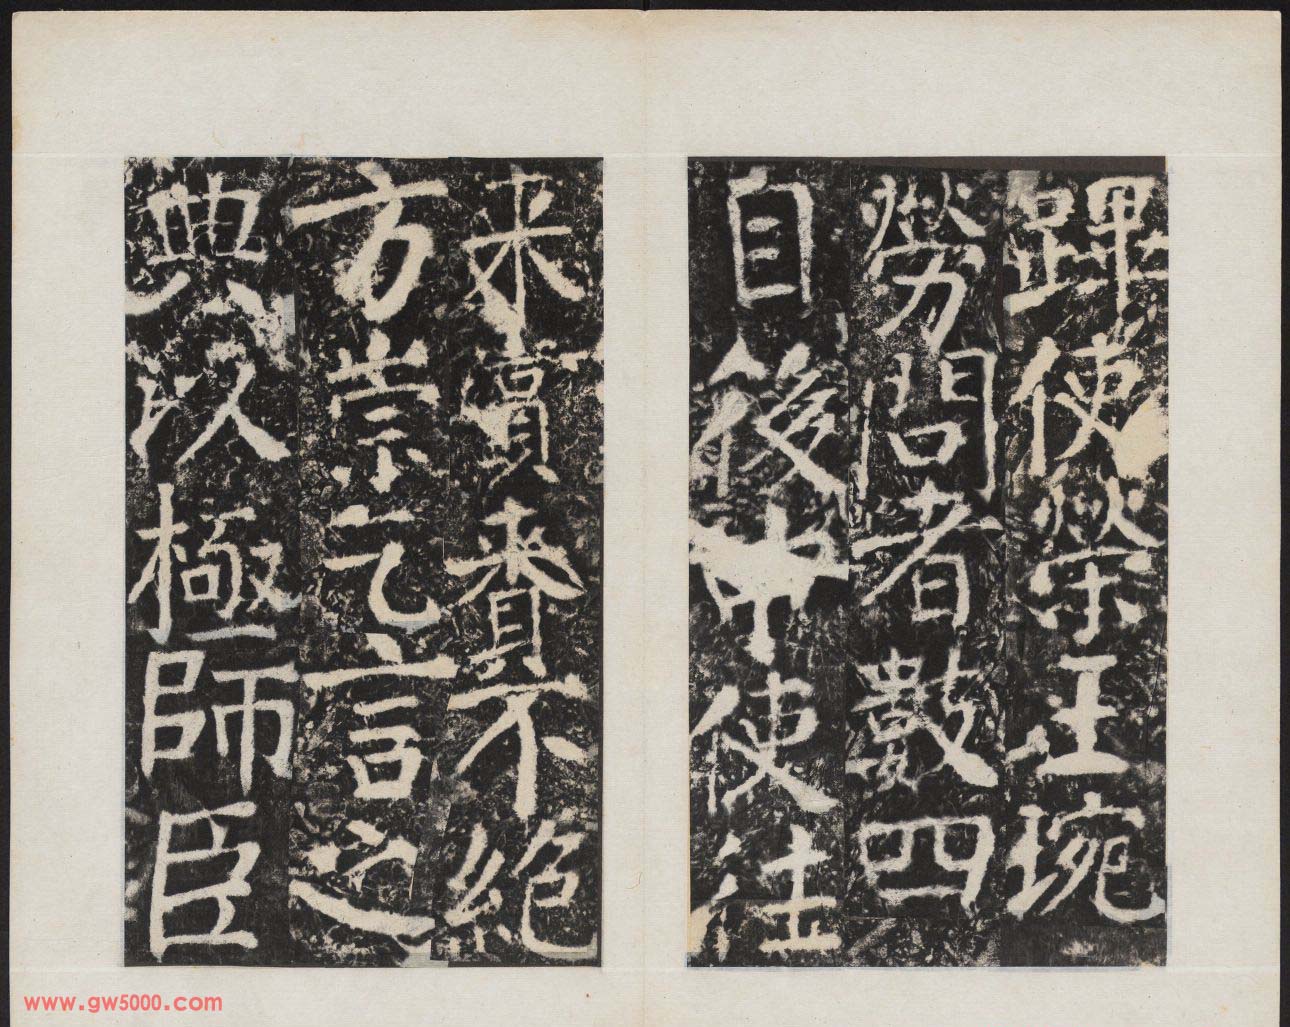 蹕使榮王琬
勞問者數四
自後中使往
來賚不絕
方崇元言之
典以極師臣
www.gw5000.com